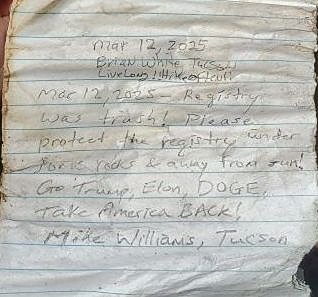 Mar 12, 2025
Brian White, Tucson
Live Long! Hike
Mar 12, 2025 - Registry
was trash! Please
protect the registry under
rocks & away from sun!
Go Trump, Elon, DOGE,
Take America BACK!
Mike Williams, Tucson